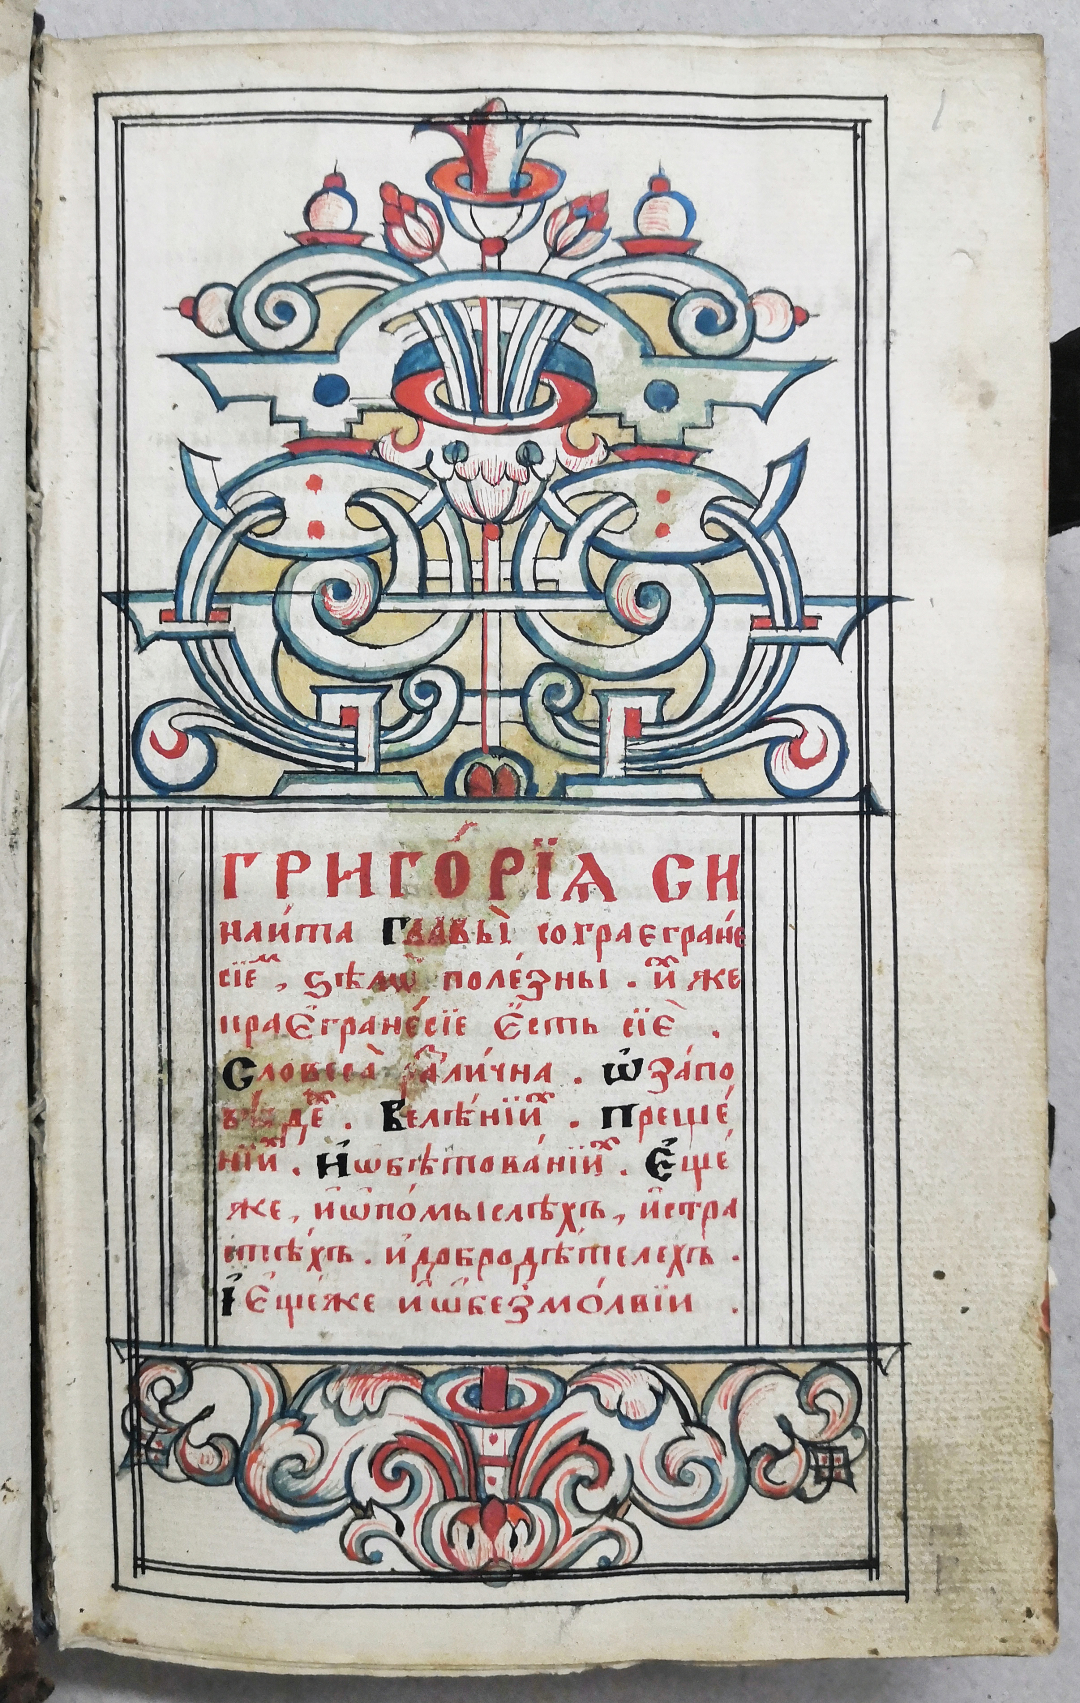 ГРИГО́РЇѦ СИ
наи́та Главы̀ сѡкраегране́
сїеⷨ, ѕѣлѡ̀ поле́зны. и҆̀хже
краегране́сїе е҆́сть сїѐ.
Словеса̀ разли́чна. ѡ҆ за́по
вѣдеⷯ. Велѣ́нїиⷯ. Преще́
нїиⷯ. И҆ ѡбѣтова́нїиⷯ. Е҆ще́
же, и҆ ѡ҆ по́мыслѣхъ, и҆ стра
стѣ́хъ. и҆ добродѣ́телехъ.
І҆ е҆ще́же и҆ ѡ҆ безмо́лвїи.